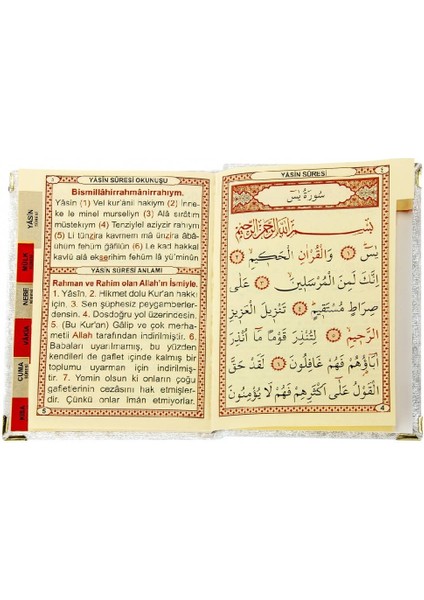 YÂSÎN SÛRESİ OKUNUŞU
Bismillâhirrahmânirrahıym.
Yâsîn (1) Vel kur'ânil hakiym (2) İnne-
ke le minel murseliyn (3) Alâ sırôtım
müstekıym (4) Tenziylel aziyzir rahıym
(5) Li tünzira kavmem mâ ünzira âbâ-
ühüm fehüm gâfilûn (6) Le kad hakkal
kavlü alâ ekserihim fehüm lâ yü'minûn
YÂSÎN SÛRESİ ANLAMI
Rahman ve Rahim olan Allah'ın ismiyle.
1. Yâsîn, 2. Hikmet dolu Kur'an hakkı
için, 3. Sen şüphesiz peygamberler-
densin. 4. Dosdoğru yol üzerindesin.
5. (Bu Kur'an) Gâlip ve çok merha-
metli Allah tarafından indirilmiştir. 6.
Babaları uyarılmamış, bu yüzden
kendileri de gaflet içinde kalmış bir
toplumu uyarman için indirilmiş-
tir. 7. Yemin olsun ki onların çoğu
gafletlerinin cezasını hak etmişler-
dir. Çünkü onlar îmân etmiyorlar.
5
YÂSÎN
MÜLK
NEBE
VÂKIA
CUMA
KISA
YÂSÎN SÛRESİ
سُورَةُ يٰسٓ
بِسْمِ اللّٰهِ الرَّحْمٰنِ الرَّحِيمِ
يٰسٓ ﴿١﴾ وَالْقُرْاٰنِ الْحَكِيمِ ﴿٢﴾
اِنَّكَ لَمِنَ الْمُرْسَلِينَ ﴿٣﴾ عَلٰى
صِرَاطٍ مُسْتَقِيمٍ ﴿٤﴾ تَنْزِيلَ الْعَزِيزِ
الرَّحِيمِ ﴿٥﴾ لِتُنْذِرَ قَوْمًا مَٓا اُنْذِرَ
اٰبَٓاؤُ۬هُمْ فَهُمْ غَافِلُونَ ﴿٦﴾ لَقَدْ حَقَّ
الْقَوْلُ عَلٰٓى اَكْثَرِهِمْ فَهُمْ لَا يُؤْمِنُونَ
4